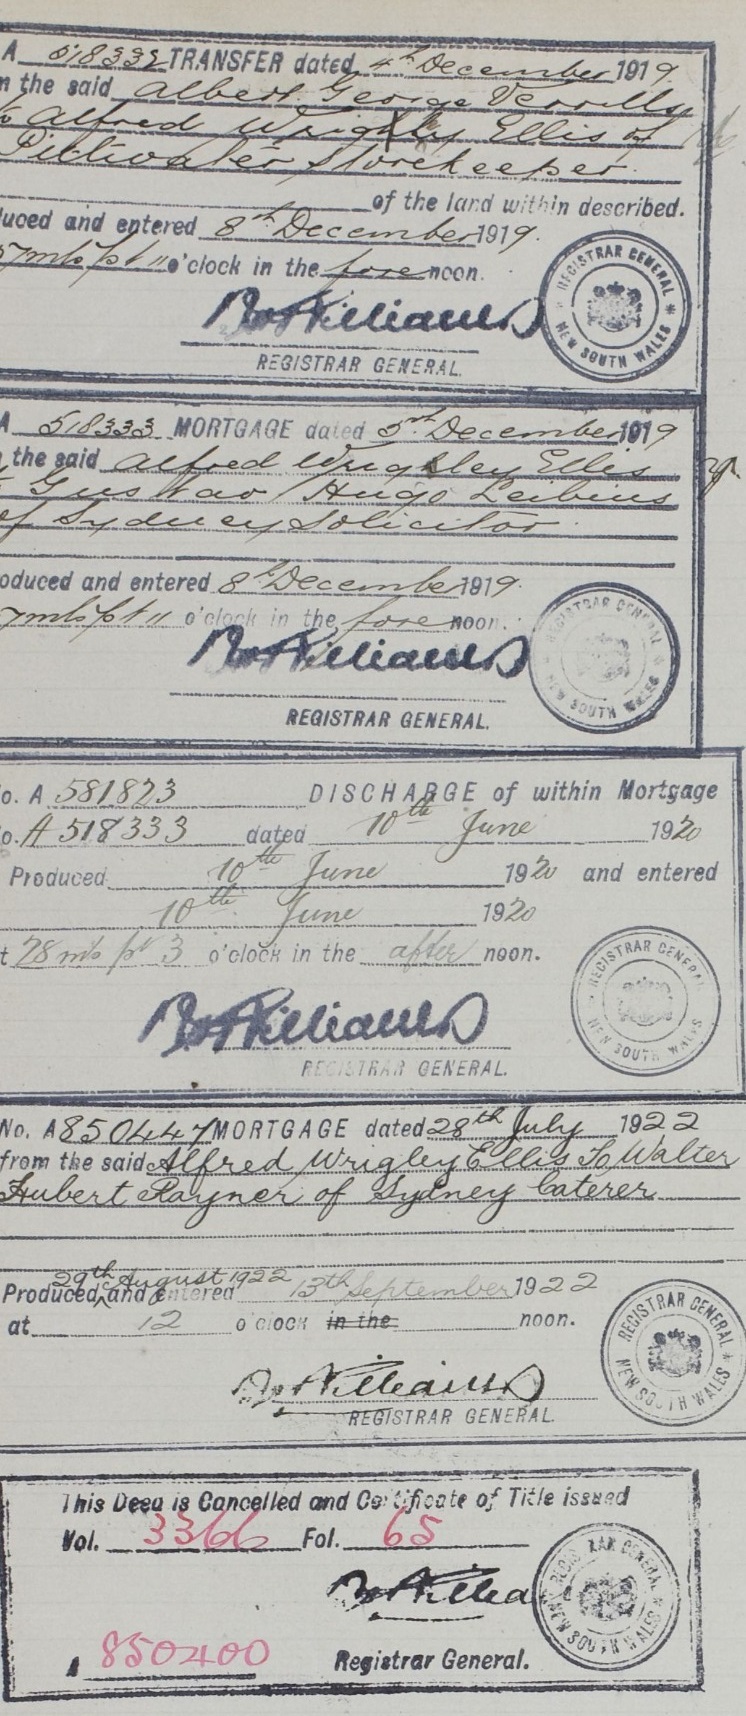 A 518332 TRANSFER dated 4th December 1919
the said Albert George Verrills
to Alfred Wrigley Ellis of
Pittwater Storekeeper
of the land within described.
duced and entered 8th December 1919.
7 mts pt 11 o'clock in the fore noon.
REGISTRAR GENERAL
NEW SOUTH WALES
REGISTRAR GENERAL.
A 518333 MORTGAGE dated 5th December 1919
the said Alfred Wrigley Ellis
Gustav Hugo Leibius
of Sydney Solicitor
oduced and entered 8th December 1919.
7 mts pt 11 o'clock in the fore noon.
REGISTRAR GENERAL
NEW SOUTH WALES
REGISTRAR GENERAL.
o. A 581823 DISCHARGE of within Mortgage
o. A 518333 dated 10th June 1920
Produced 10th June 1920 and entered
10th June 1920
t 28 mts pt 3 o'clock in the after noon.
REGISTRAR GENERAL
NEW SOUTH WALES
REGISTRAR GENERAL.
No. A 850447 MORTGAGE dated 28th July 1922
from the said Alfred Wrigley Ellis to Walter
Hubert Rayner of Sydney Caterer
29th August 1922
Produced and entered 13th September 1922
at 12 o'clock in the noon.
REGISTRAR GENERAL
NEW SOUTH WALES
REGISTRAR GENERAL.
This Deed is Cancelled and Certificate of Title issued
Vol. 3366 Fol. 65
REGISTRAR GENERAL
NEW SOUTH WALES
A 850400 Registrar General.